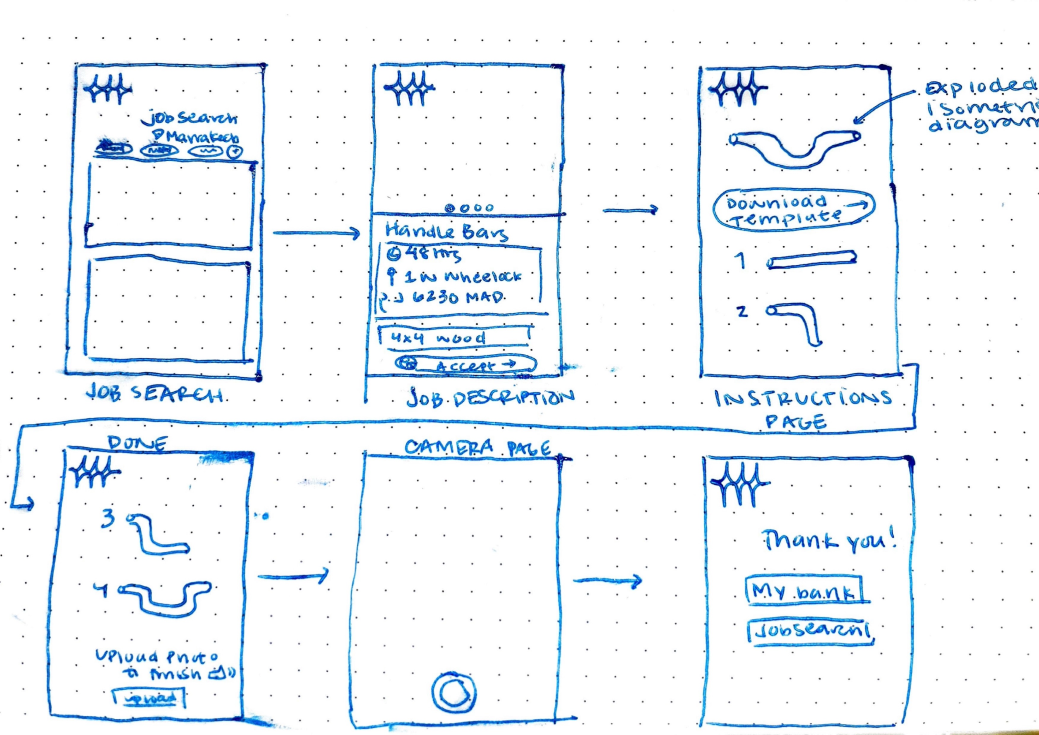 Job Search
Marrakech
JOB SEARCH
Handle Bars
48 Hrs
6230 MAD
4x4 wood
Accept →
JOB DESCRIPTION
Exploded
isometri
diagram
Download →
Template
1
2
INSTRUCTIONS
PAGE
DONE
3
4
Upload Photo
to finish
upload
CAMERA PAGE
Thank you!
My bank
Job search